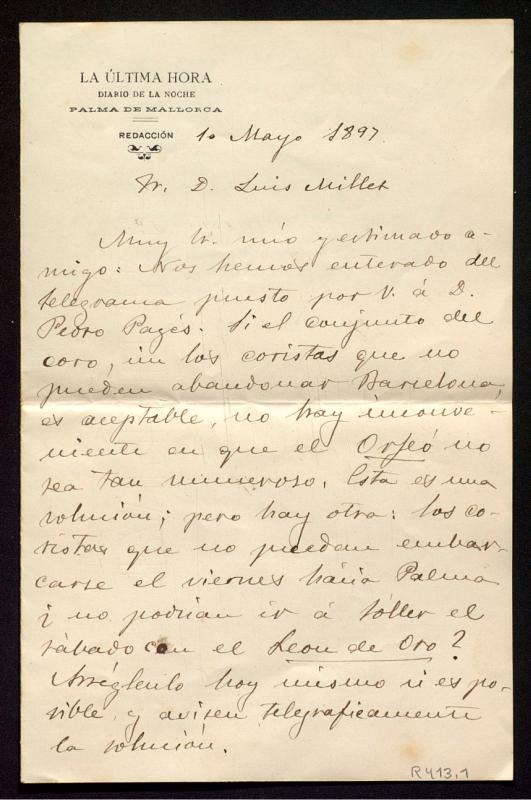 LA ÚLTIMA HORA
DIARIO DE LA NOCHE
PALMA DE MALLORCA
REDACCIÓN
10 Mayo 1897.
Sr. D. Luis Millet
Muy Sr. mío y estimado a-
migo: Nos hemos enterado del
telegrama puesto por V. á D.
Pedro Pagés. Si el conjunto del
coro, sin los coristas que no
pueden abandonar Barcelona,
es aceptable, no hay inconve-
niente en que el Orfeó no
sea tan numeroso. Esta es una
solución; pero hay otra: los co-
ristas que no puedan embar-
carse el viernes hácia Palma
¿no podrian ir á Sóller el
sábado con el Leon de Oro?
Arréglenlo hoy mismo si es po-
sible, y avisen telegraficamente
la solución.
R413,1